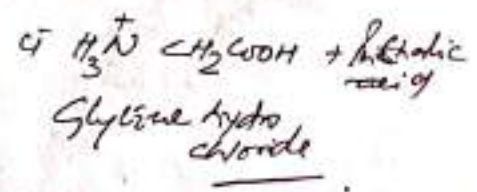 Cl⁻ H₃N⁺ CH₂COOH + Phthalic acid
Glycine hydro
chloride